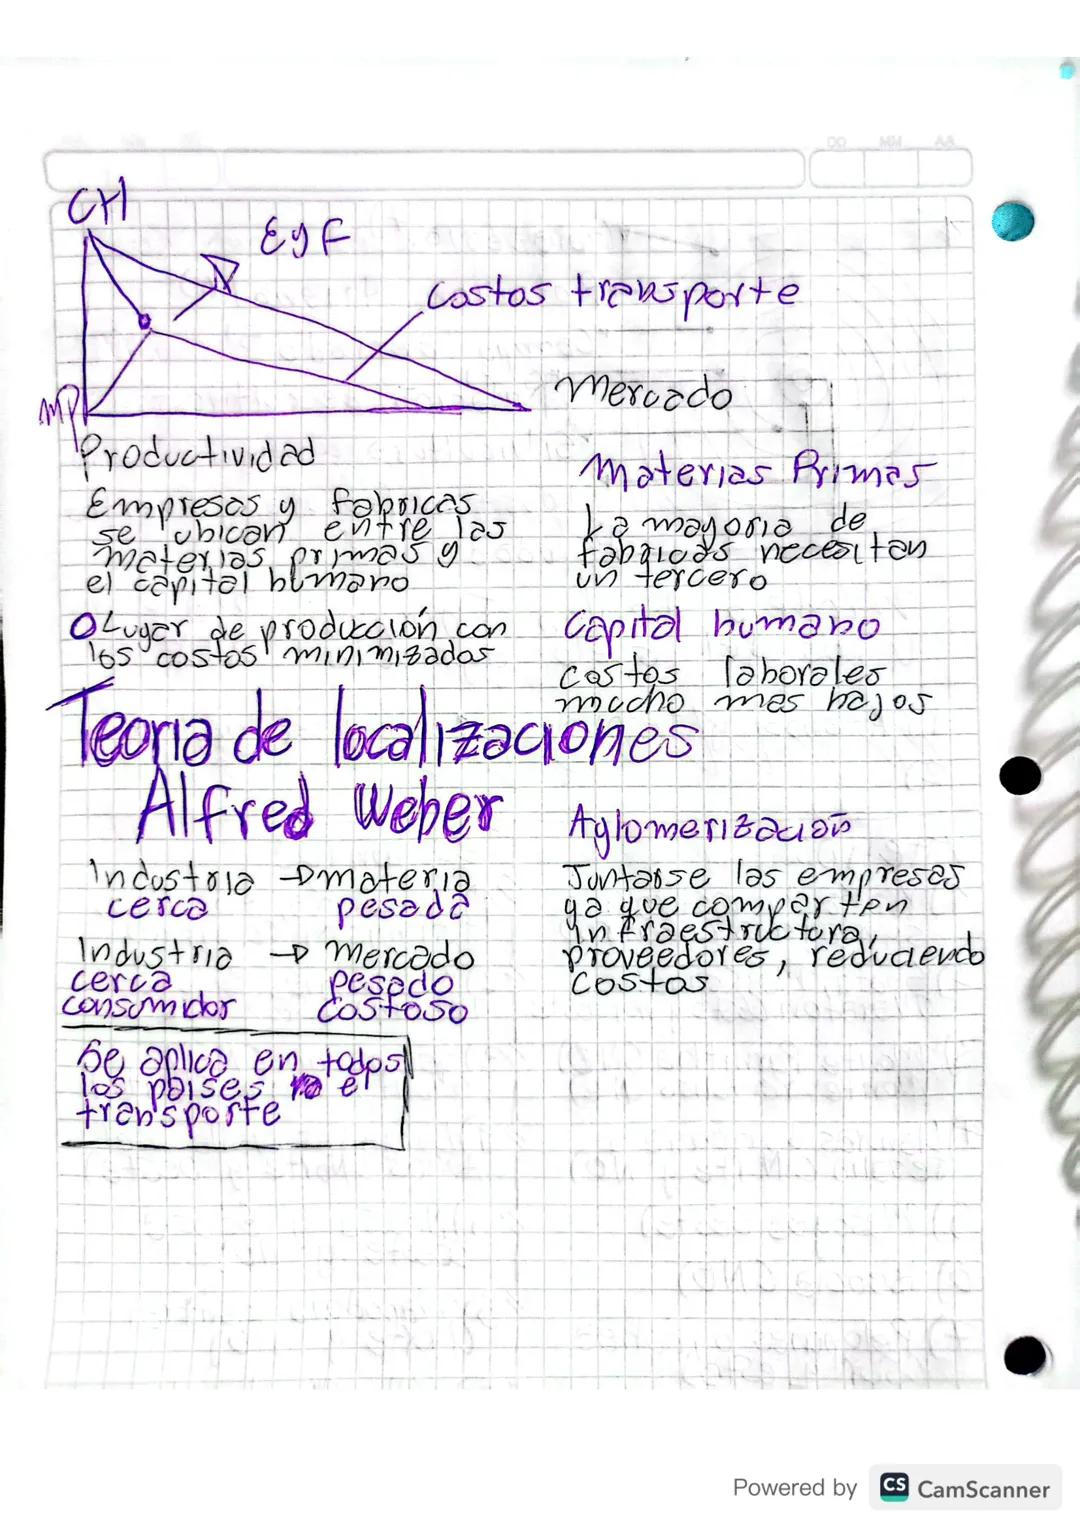 DD MM AA
CH
EyF
Costos transporte
Mercado
MP
Productividad
Empresas y fabricas
se ubican entre las
materias primas y
el capital humano
O Lugar de producción con
los costos minimizados
Materias Primas
La mayoria de
fabricas necesitan
un tercero
Capital humano
costos laborales
mucho mas bajos
Teoria de localizaciones
Alfred Weber
Industria → materia
cerca pesada
Industria → mercado
cerca pesado
consumidor costoso
Se aplica en todos
los paises
transporte
Aglomerización
Juntarse las empresas
ya que comparten
infraestructura,
proveedores, reduciendo
costos
Powered by CS CamScanner